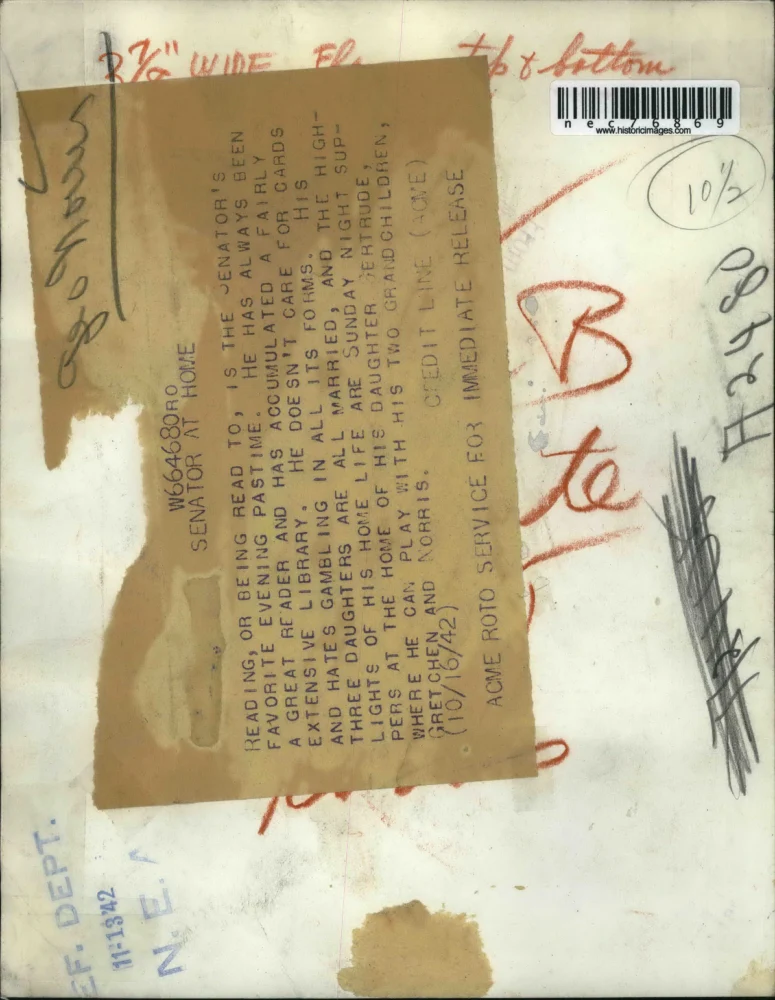 3 7/8" WIDE
top & bottom
nec76869
www.historicimages.com
10 1/2
Geo Norris
W664680RO
SENATOR AT HOME
READING, OR BEING READ TO, IS THE SENATOR'S
FAVORITE EVENING PASTIME. HE HAS ALWAYS BEEN
A GREAT READER AND HAS ACCUMULATED A FAIRLY
EXTENSIVE LIBRARY. HE DOESN'T CARE FOR CARDS
AND HATES GAMBLING IN ALL ITS FORMS. HIS
THREE DAUGHTERS ARE ALL MARRIED, AND THE HIGH-
LIGHTS OF HIS HOME LIFE ARE SUNDAY NIGHT SUP-
PERS AT THE HOME OF HIS DAUGHTER GERTRUDE,
WHERE HE CAN PLAY WITH HIS TWO GRANDCHILDREN,
GRETCHEN AND NORRIS. CREDIT LINE (ACME)
(10/16/42)
ACME ROTO SERVICE FOR IMMEDIATE RELEASE
B
te
A2480
EF. DEPT.
11-13'42
N. E. A